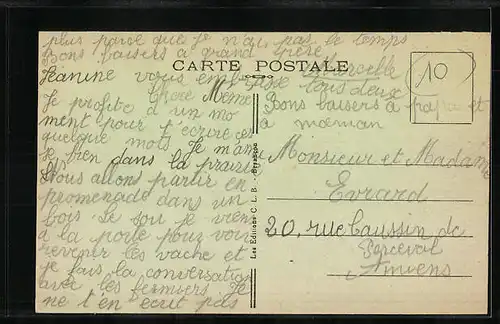 plus parce que je n'ai pas le temps
Bons baisers a grand Mère
CARTE POSTALE
10
Marcelle
Jeanine vous embrasse tous deux
Chere Mémé
Bons baisers à papa et
à maman
Je profite d'un mo
ment pour t'ecrire ces
quelque mots. Je m'amu
se bien dans la prairie
Nous allons partir en
promenade dans un
bois. Le soir je viens
à la porte pour voir
revenir les vache et
je fais la conversation
avec les fermiers. Je
ne t'en ecrit pas
Les Editions C. L. B. - Besançon
Monsieur et Madame
Evrard
20, rue Caussin de
Perceval
Amiens